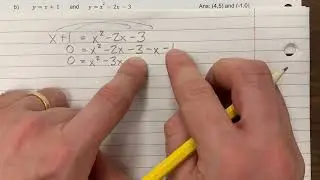 b) y = x + 1 and y = x² - 2x - 3 Ans: (4,5) and (-1,0)
x+1 = x² -2x -3
0 = x² -2x -3 -x -1
0 = x² -3x